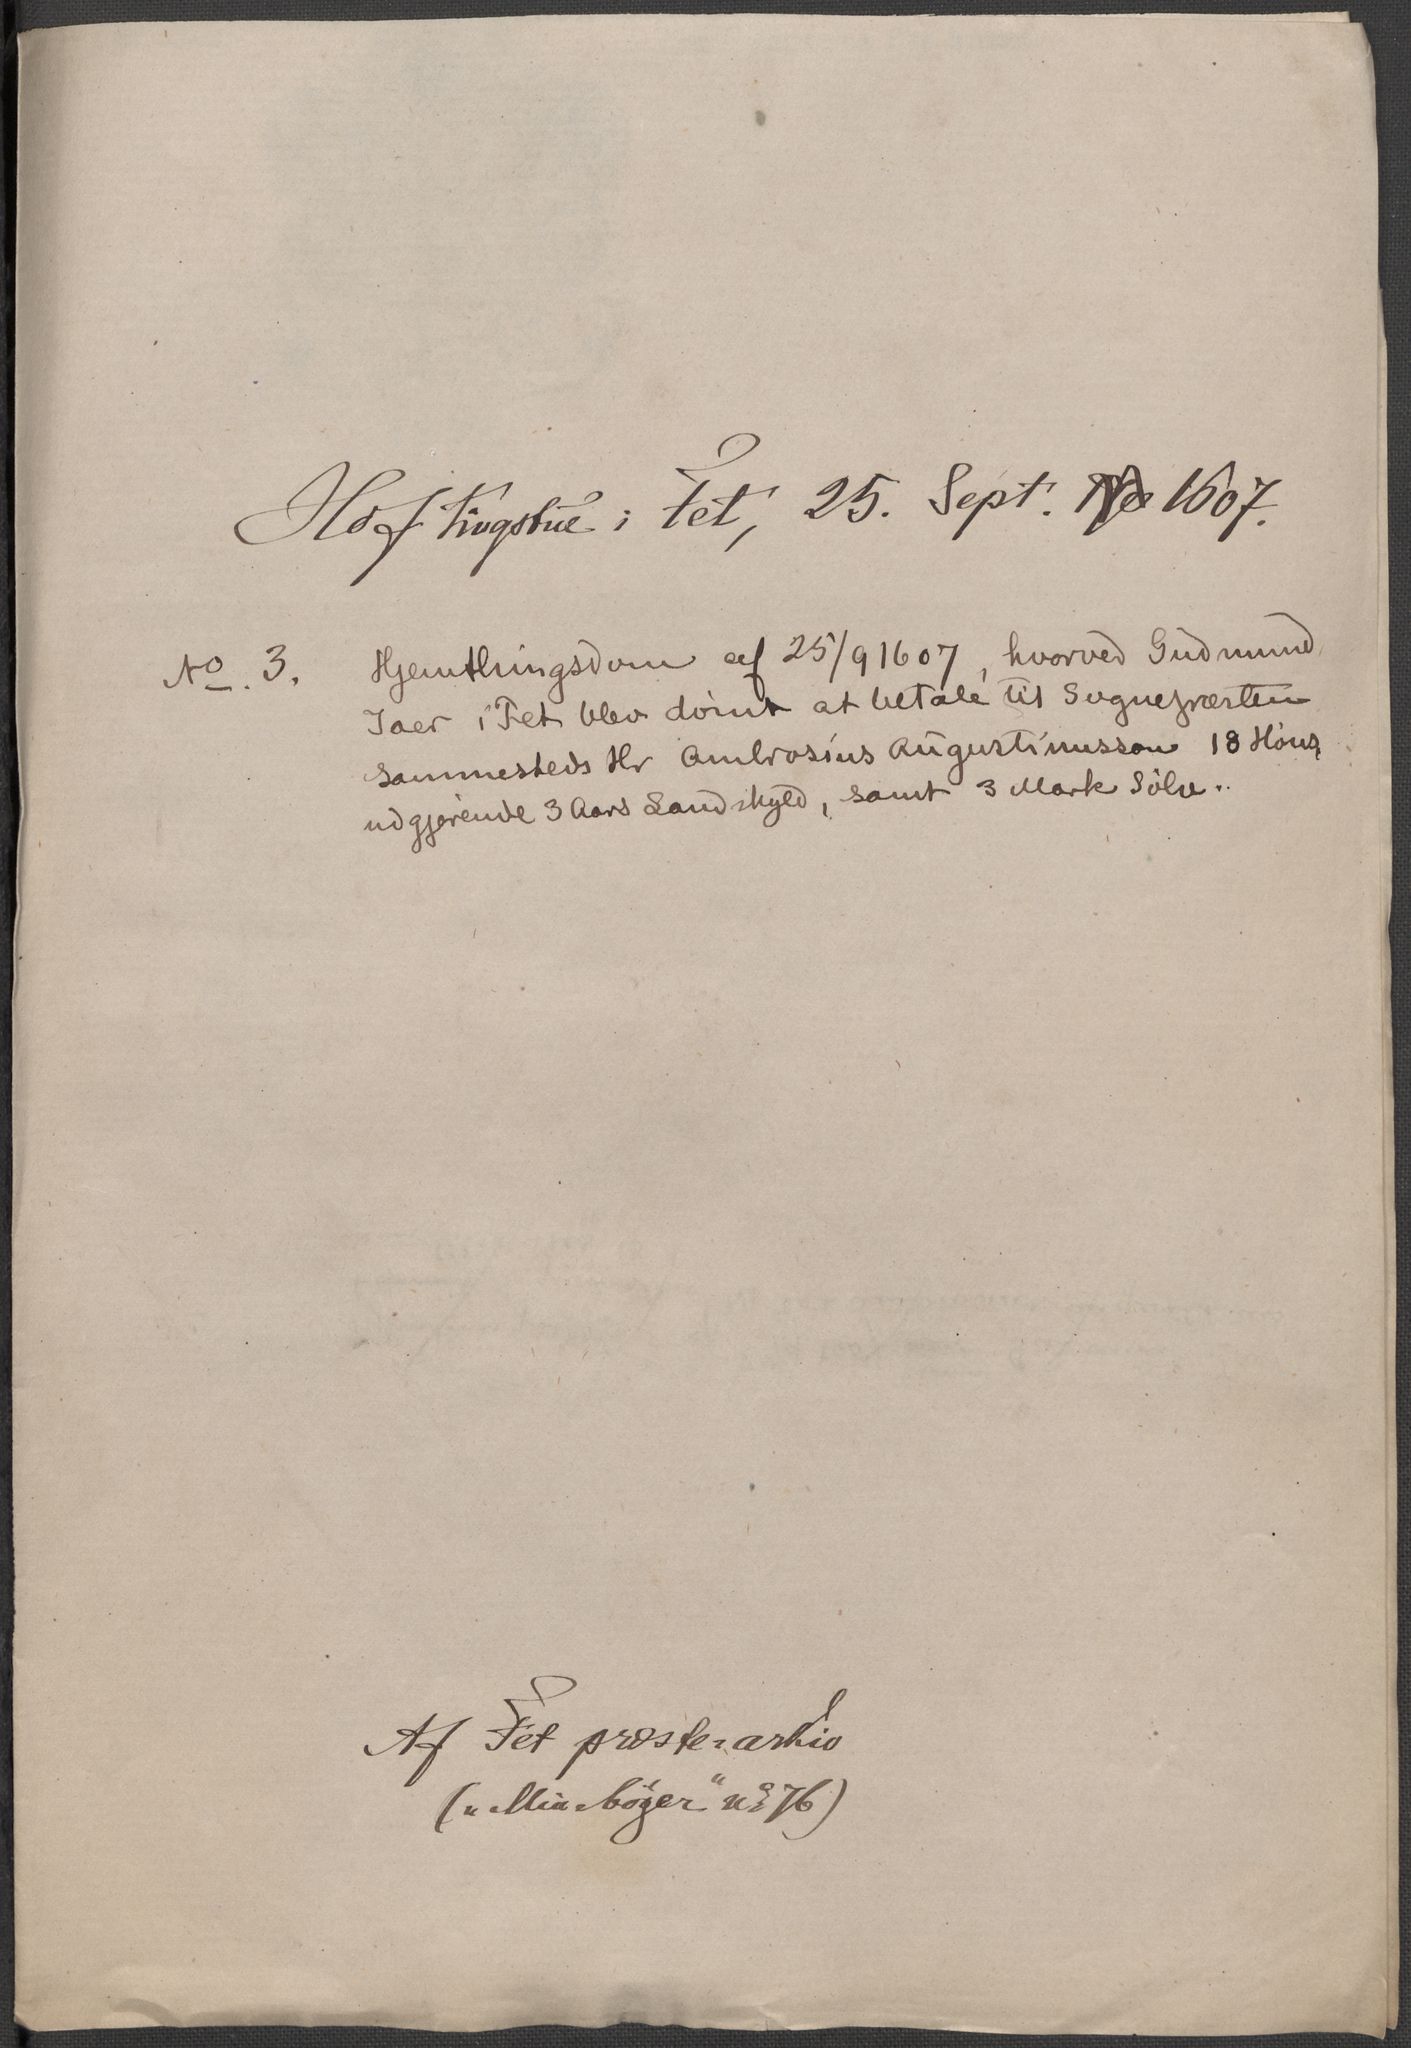 Hof tingstue i Fet, 25. Sept. 1607.
No. 3. Hjemthingsdom af 25/9 1607, hvorved Gudmund
Jaer i Fet blev dömt at betale til Sognepræsten
sammesteds Hr Ambrosius Augustinusson 18 Höns,
udgjörende 3 Aars Landskyld, samt 3 Mark Sölv.
Af Fet præste-arkiv
("Min-böger" no 76)